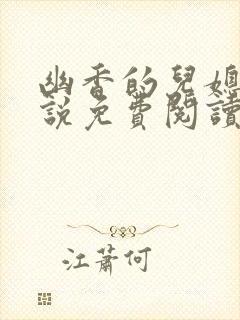 幽香的兒媳
說免費閱讀
江蕭何